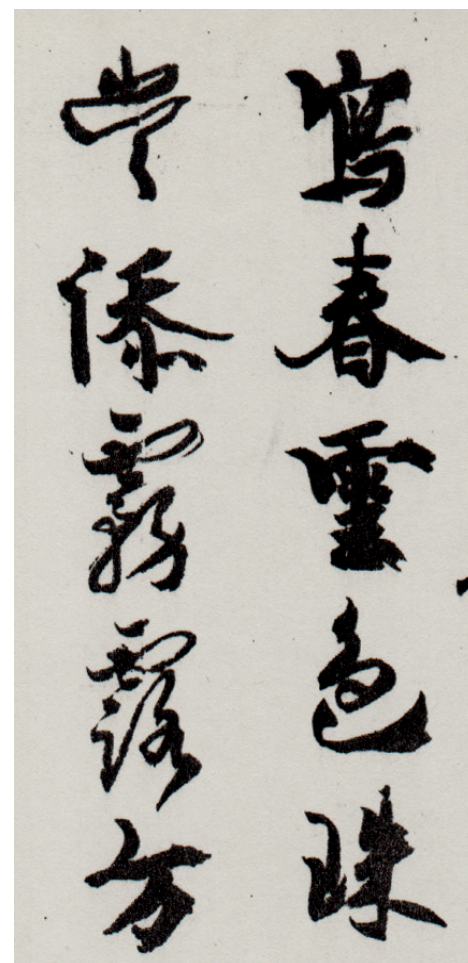 寫春雲色珠
添霧露方